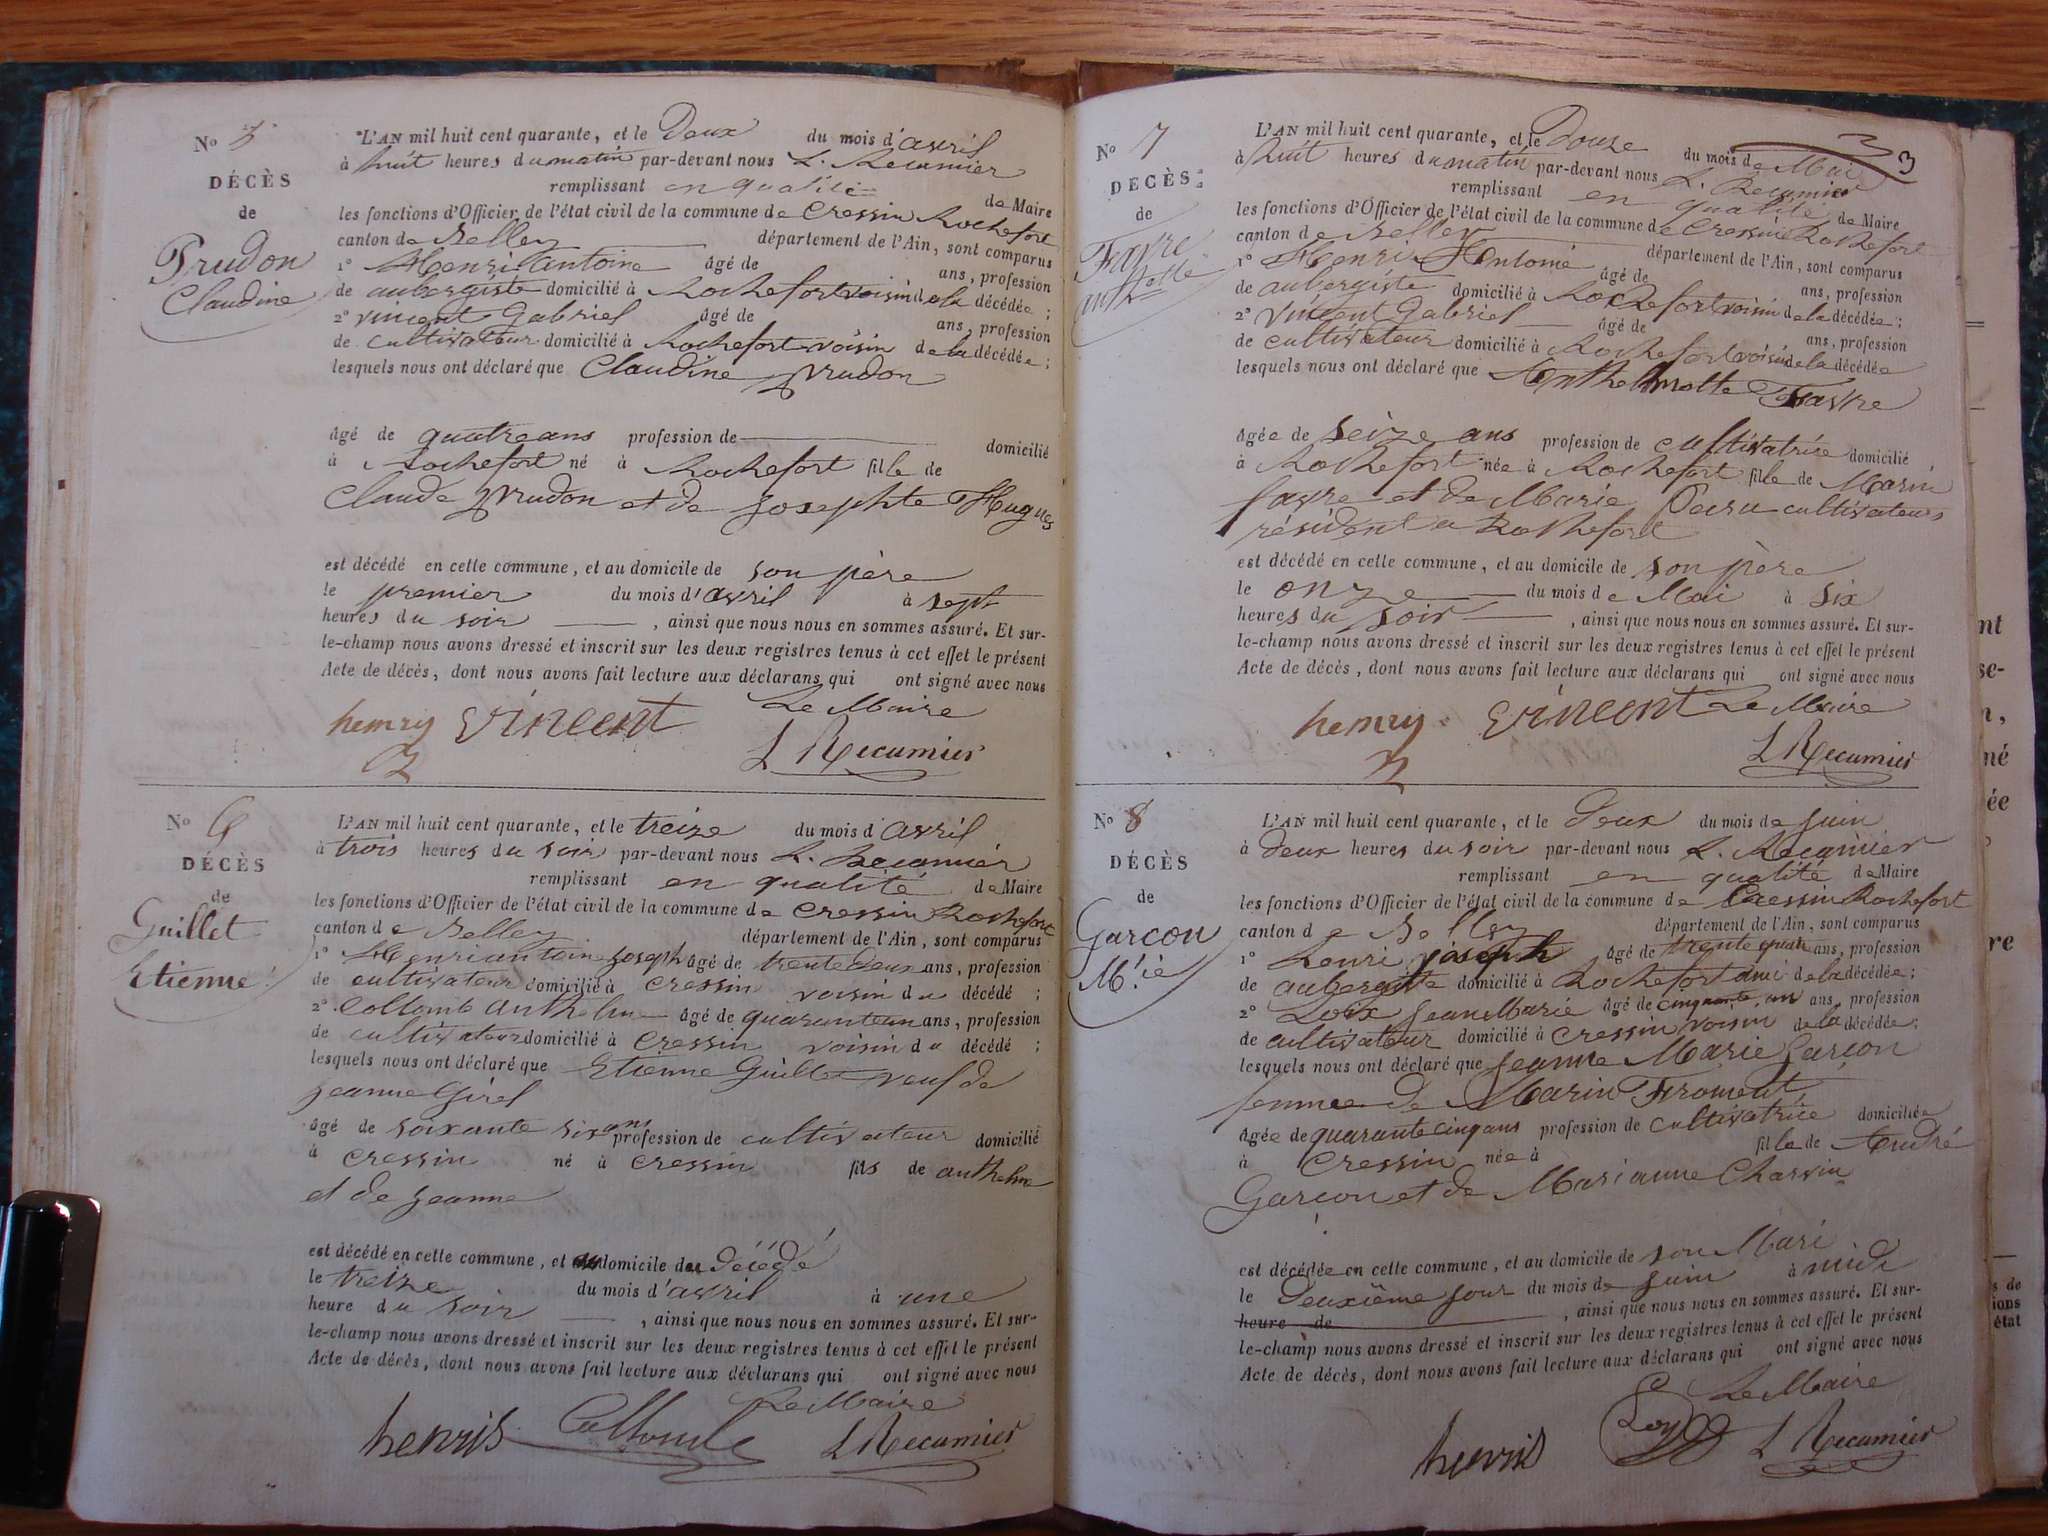 No 5
DÉCÈS
de
Prudon
Claudine
L'AN mil huit cent quarante, et le Deux du mois d'avril
à huit heures du matin par-devant nous L. Recamier
remplissant en qualité de Maire
les fonctions d'Officier de l'état civil de la commune de Cressin Rochefort
canton de Belley département de l'Ain, sont comparus
1° Henri Antoine âgé de ans, profession
de aubergiste domicilié à Rochefort voisin de la décédée ;
2° vincent Gabriel âgé de ans, profession
de cultivateur domicilié à Rochefort voisin de la décédée ;
lesquels nous ont déclaré que Claudine prudon
âgé de quatre ans profession de domicilié
à Rochefort né à Rochefort fille de
Claude prudon et de Josephte Hugues
est décédé en cette commune, et au domicile de son père
le premier du mois d'avril à sept
heures du soir , ainsi que nous nous en sommes assuré. Et sur-
le-champ nous avons dressé et inscrit sur les deux registres tenus à cet effet le présent
Acte de décès, dont nous avons fait lecture aux déclarans qui ont signé avec nous
Le Maire
henry vincent
L Recamier
No 6
DÉCÈS
de
Guillet
Etienne
L'AN mil huit cent quarante, et le treize du mois d'avril
à trois heures du soir par-devant nous L. Recamier
remplissant en qualité de Maire
les fonctions d'Officier de l'état civil de la commune de Cressin Rochefort
canton de Belley département de l'Ain, sont comparus
1° Henri antoine joseph âgé de trente deux ans, profession
de cultivateur domicilié à Cressin voisin du décédé ;
2° Collomb anthelme âgé de quarante un ans, profession
de cultivateur domicilié à Cressin voisin du décédé ;
lesquels nous ont déclaré que Etienne Guillet veuf de
jeanne Girel
âgé de soixante six ans profession de cultivateur domicilié
à Cressin né à Cressin fils de anthelme
et de jeanne
est décédé en cette commune, et au domicile du décédé
le treize du mois d'avril à une
heure du soir , ainsi que nous nous en sommes assuré. Et sur-
le-champ nous avons dressé et inscrit sur les deux registres tenus à cet effet le présent
Acte de décès, dont nous avons fait lecture aux déclarans qui ont signé avec nous
Le Maire
henris Collomb L Recamier
3
No 7
DÉCÈS
de
Favre
anth.lle
L'AN mil huit cent quarante, et le Douze du mois de Mai
à huit heures du matin par-devant nous L. Recamier
remplissant en qualité de Maire
les fonctions d'Officier de l'état civil de la commune de Cressin Rochefort
canton de Belley département de l'Ain, sont comparus
1° Henri Antoine âgé de ans, profession
de aubergiste domicilié à Rochefort voisin de la décédée ;
2° vincent Gabriel âgé de ans, profession
de cultivateur domicilié à Rochefort voisin de la décédée
lesquels nous ont déclaré que Anthelmette Favre
âgée de seize ans profession de cultivatrice domicilié
à Rochefort née à Rochefort fille de Marin
favre et de Marie cultivateurs
résident a Rochefort
est décédé en cette commune, et au domicile de son père
le onze du mois de Mai à six
heures du soir , ainsi que nous nous en sommes assuré. Et sur-
le-champ nous avons dressé et inscrit sur les deux registres tenus à cet effet le présent
Acte de décès, dont nous avons fait lecture aux déclarans qui ont signé avec nous
henry vincent Le Maire
L Recamier
No 8
DÉCÈS
de
Garcon
M.ie
L'AN mil huit cent quarante, et le Deux du mois de juin
à deux heures du soir par-devant nous L. Recamier
remplissant en qualité de Maire
les fonctions d'Officier de l'état civil de la commune de Cressin Rochefort
canton de Belley département de l'Ain, sont comparus
1° henri joseph âgé de trente quatre ans, profession
de aubergiste domicilié à Rochefort ami de la décédée ;
2° Loix Jean Marie âgé de cinquante un ans, profession
de cultivateur domicilié à Cressin voisin de la décédée ;
lesquels nous ont déclaré que jeanne Marie Garcon
femme de Marin Froment
âgée de quarante cinq ans profession de cultivatrice domiciliée
à Cressin née à fille de André
Garcon et de Marianne Charvin
est décédée en cette commune, et au domicile de son Mari
le Deuxième jour du mois de juin à midi
heure de , ainsi que nous nous en sommes assuré. Et sur-
le-champ nous avons dressé et inscrit sur les deux registres tenus à cet effet le présent
Acte de décès, dont nous avons fait lecture aux déclarans qui ont signé avec nous
Le Maire
henris Loy L Recamier